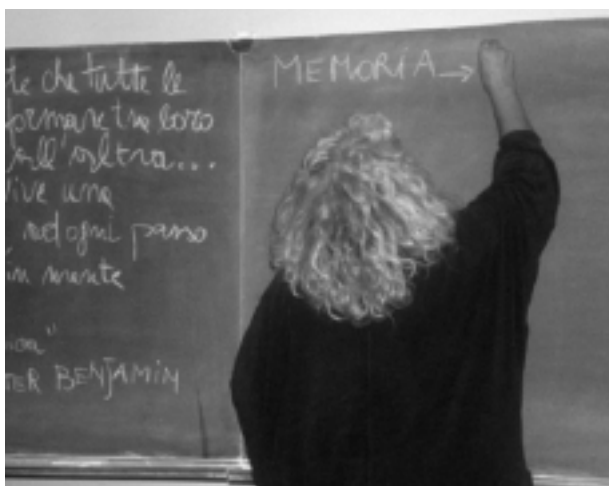 te che tutte le
formare tra loro
all'altra...
vive una
ad ogni passo
in mente
TER BENJAMIN
MEMORIA →